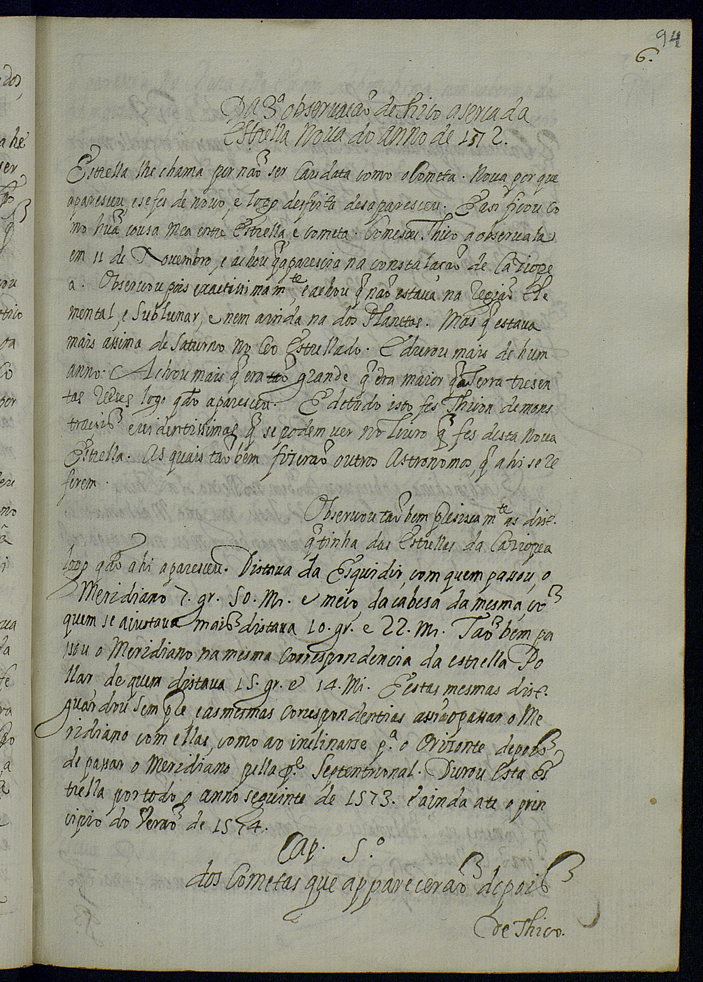 94
6.
Da 3ª observacaõ de Thico aserca da
Estrella Nova do anno de 1572.
Estrella lhe chama por naõ ser Caudata como o Cometa. Nova por que
apareseu e se fes de novo, e logo desfeita desapareseu. E asi ficou co
mo huã cousa mea entre Estrella e Cometa. Comesou Thico a observala
em 11 de Novembro, e achou q̃ aparesera na constalacaõ de Caziope
a. Observou pois exactissimamte, e achou q̃ naõ estava na Regiaõ Ele
mental, e Sublunar, e nem ainda na dos Planetas. Mas q̃ estava
mais asima de Saturno no Ceo Estrellado. E durou mais de hum
anno. Achou mais q̃ era taõ grande q̃ era maior q̃ a Terra tresen
tas vezes logo qdo apareseu. E de tudo isto fes Thico demons
tracois evidentissimas q̃ se podem ver no Livro q̃ fes desta Nova
Estrella. As quais taõ bem fizeraõ outros Astronomos, q̃ ahi se re
ferem.
Observou taõ bem presizamte as dist.
q̃ tinha das Estrellas da Caziopea
logo qdo ahi apareseu. Distava da com quem pasou, o
Meridiano 7. gr. 50. Mi. e meio da cabesa da mesma, co
quem se aiustava mais distava 10. gr. e 22. Mi. Taõ bem pa
sou o Meridiano na mesma correspondencia da estrella Po
llar de quem distava 15. gr. e 14. Mi. E estas mesmas dist.
guardou sempre e as mesmas correspondentias assi ao pasar o Me
ridiano com ellas, como ao inclinarse pª o Orizonte depois
de pasar o Meridiano pella pte Septentrional. Durou Esta Es
trella por todo o anno seguinte de 1573. e ainda ate o prin
cipio do Veraõ de 1574.
Cap. 5.º
dos Cometas que appareceraõ depois
de Thico.